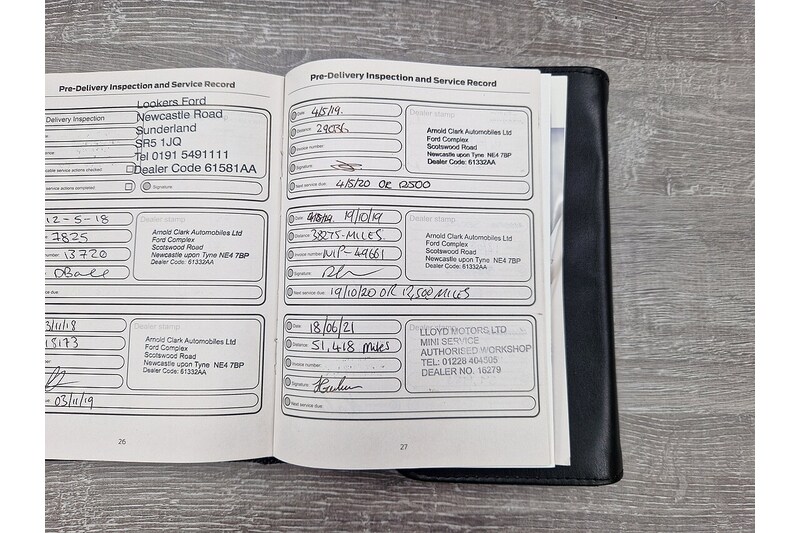 Pre-Delivery Inspection and Service Record
Delivery Inspection
Lookers Ford
Newcastle Road
Sunderland
SR5 1JQ
Tel 0191 5491111
Dealer Code 61581AA
able service actions checked
service actions completed
Signature
12-5-18
7825
number 13720
DBall
due:
Dealer stamp
Arnold Clark Automobiles Ltd
Ford Complex
Scotswood Road
Newcastle upon Tyne NE4 7BP
Dealer Code: 61332AA
3/11/18
18173
number:
03/11/19
Dealer stamp
Arnold Clark Automobiles Ltd
Ford Complex
Scotswood Road
Newcastle upon Tyne NE4 7BP
Dealer Code: 61332AA
26
Pre-Delivery Inspection and Service Record
Date 4/5/19.
Distance: 29036
Invoice number:
Signature:
Next service due: 4/5/20 OR 12500
Dealer stamp
Arnold Clark Automobiles Ltd
Ford Complex
Scotswood Road
Newcastle upon Tyne NE4 7BP
Dealer Code: 61332AA
Date 19/10/19
Distance: 38275-MILES.
Invoice number: WIP-49661
Signature:
Next service due: 19/10/20 OR 12,500 MILES
Dealer stamp
Arnold Clark Automobiles Ltd
Ford Complex
Scotswood Road
Newcastle upon Tyne NE4 7BP
Dealer Code: 61332AA
Date 18/06/21
Distance: 51,418 miles
Invoice number:
Signature:
Next service due:
Dealer stamp
LLOYD MOTORS LTD
MINI SERVICE
AUTHORISED WORKSHOP
TEL: 01228 404505
DEALER NO. 16279
27